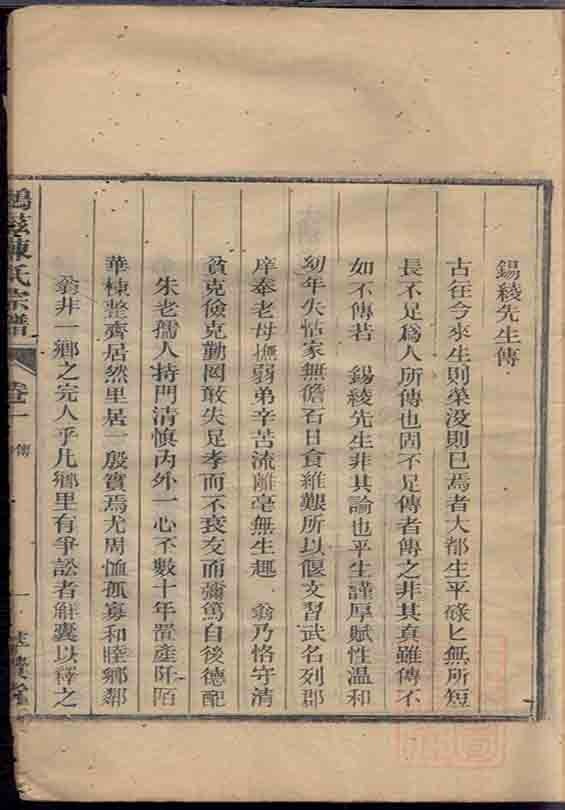 錫綾先生傳
古往今來生則榮没則已焉者大都生平碌匕無所短
長不足爲人所傳也固不足傳者傳之非其真雖傳不
如不傳若 錫綾先生非其論也平生謹厚賦性温和
幼年失怙家無儋石日食維艱所以偃文習武名列郡
庠奉老母撫弱弟辛苦流離毫無生趣 翁乃恪守清
貧克儉克勤罔敢失足孝而不衰友而彌篤自後德配
朱老孺人持門清慎内外一心不數十年置產阡陌
華棟整齊居然里居一殷實焉尤周恤孤寡和睦鄉鄰
翁非一鄉之完人乎凡鄉里有爭訟者解囊以釋之
陳氏宗譜
卷一
傳
一